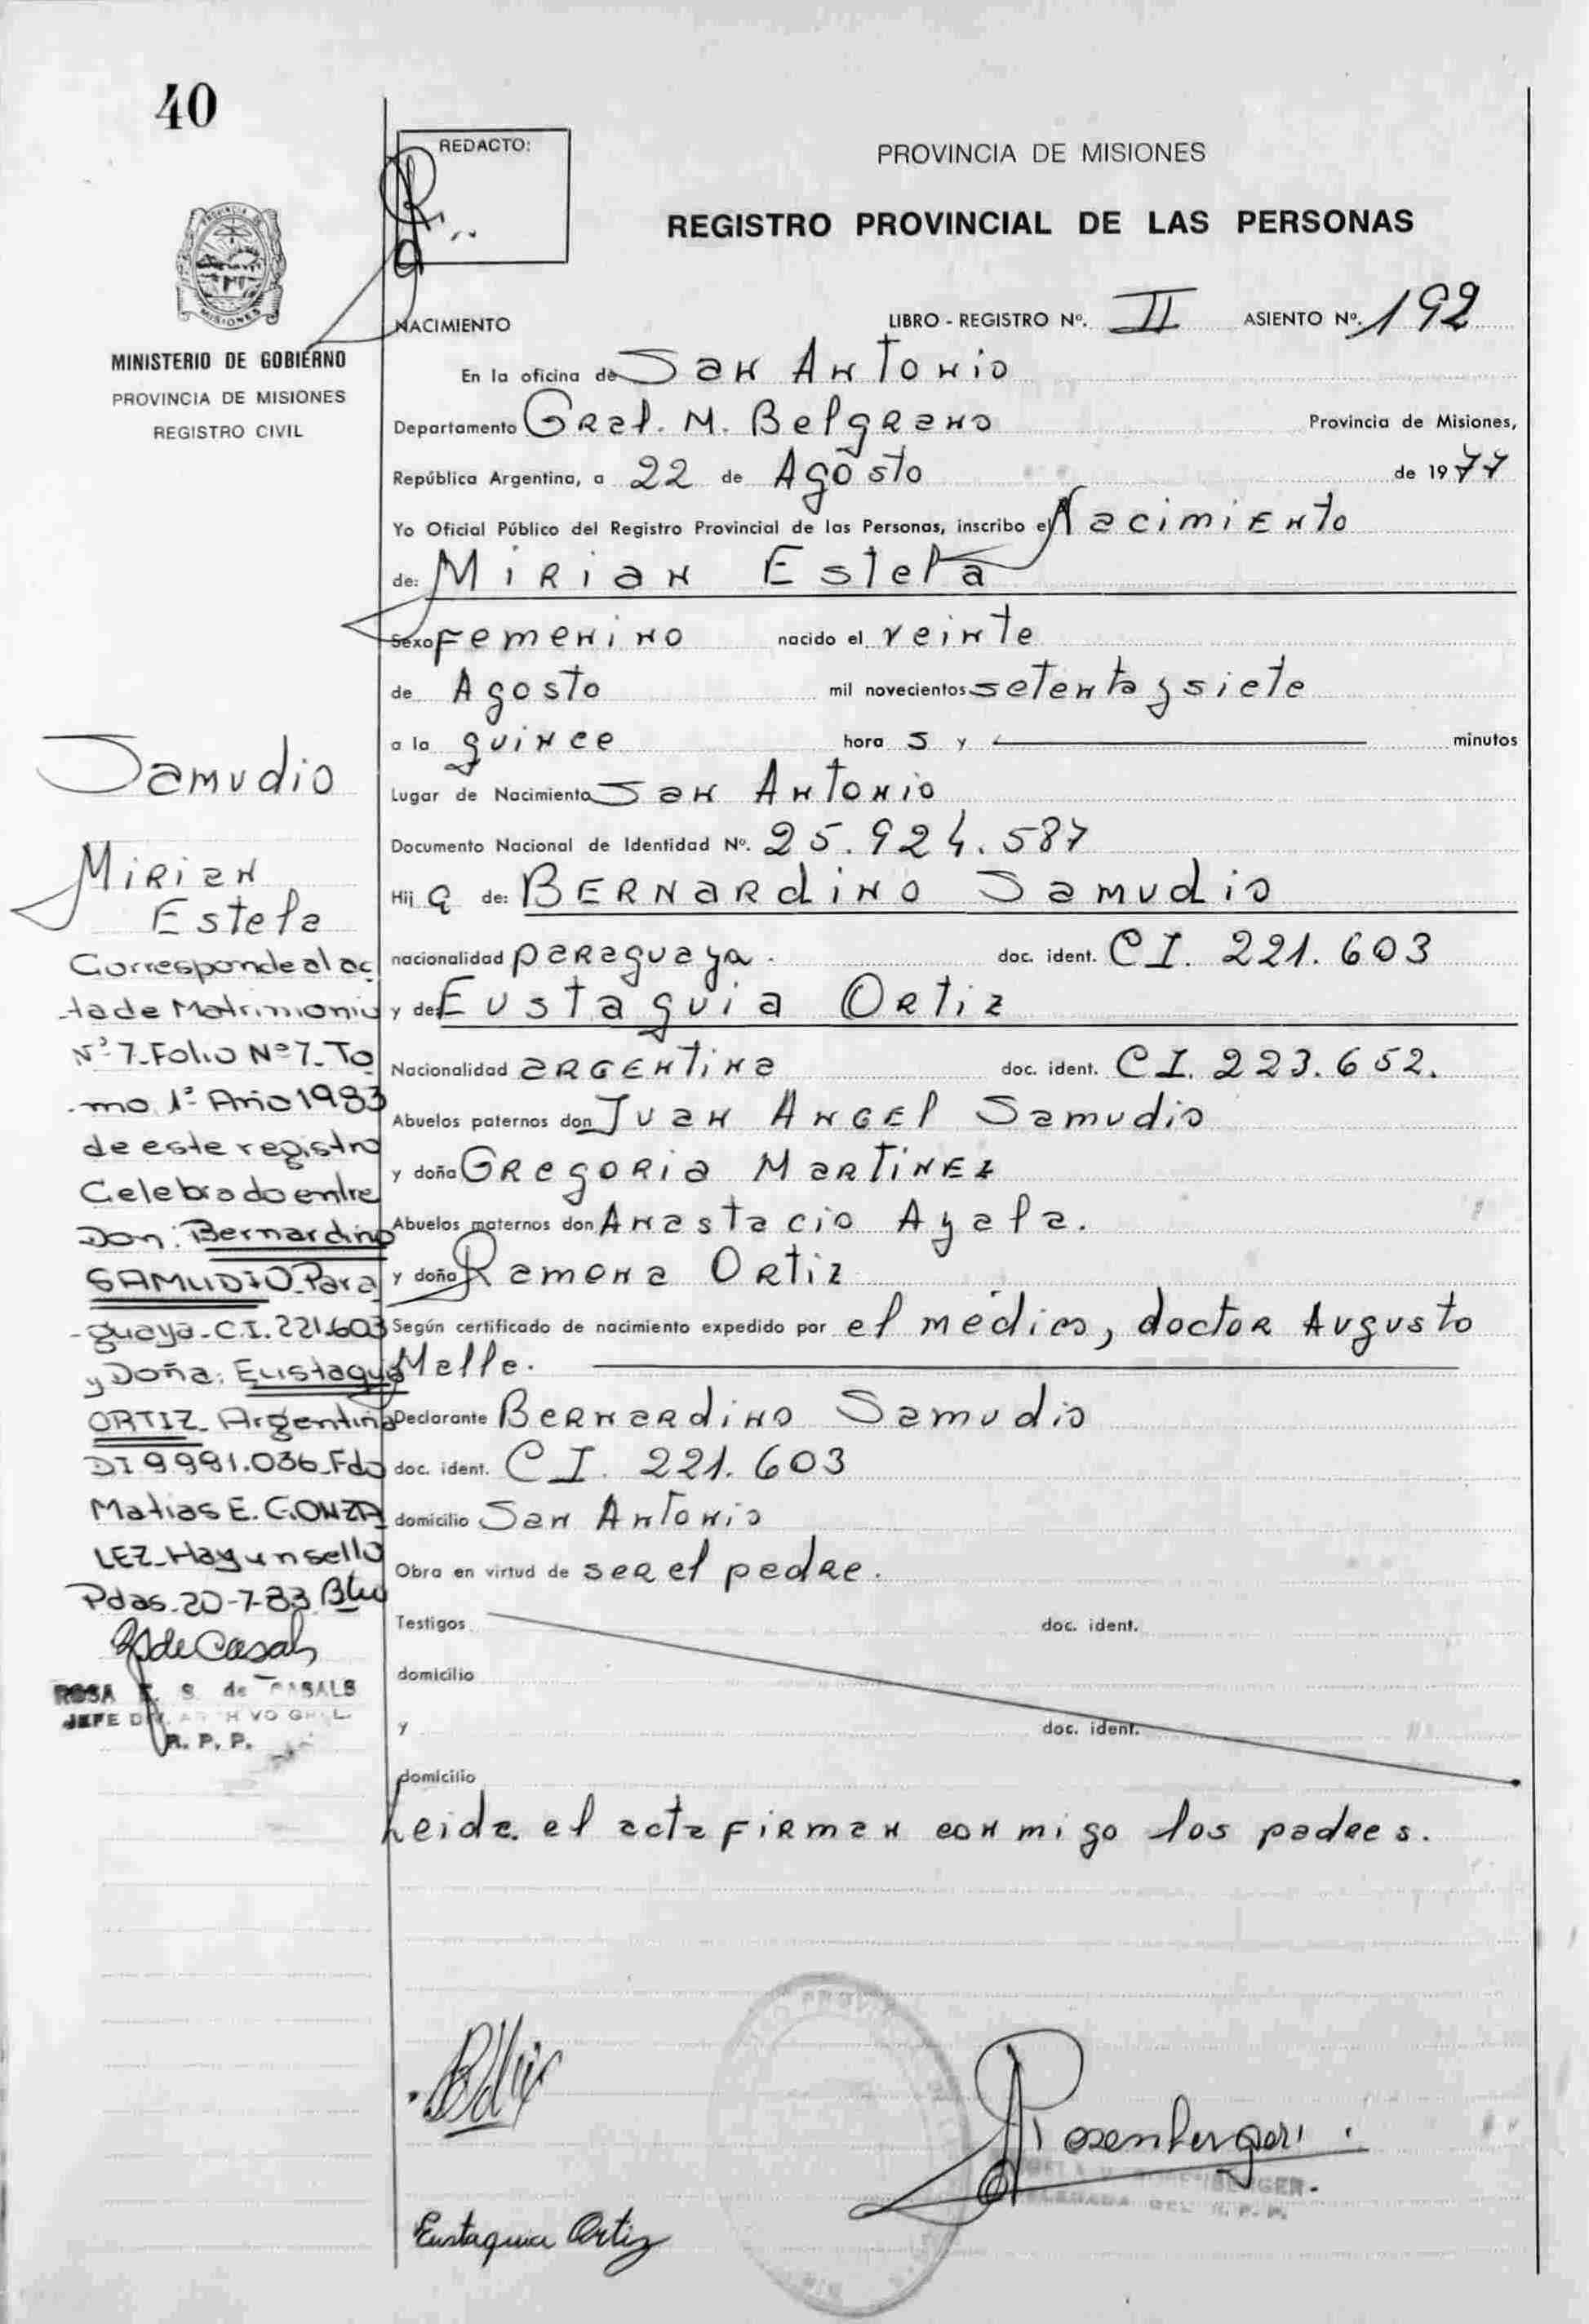 40
REDACTO:
PROVINCIA DE MISIONES
REGISTRO PROVINCIAL DE LAS PERSONAS
MISIONES
MINISTERIO DE GOBIERNO
PROVINCIA DE MISIONES
REGISTRO CIVIL
NACIMIENTO LIBRO - REGISTRO Nº. II ASIENTO Nº. 192
En la oficina de San Antonio
Departamento Gral. M. Belgrano Provincia de Misiones,
República Argentina, a 22 de Agosto de 1977
Yo Oficial Público del Registro Provincial de las Personas, inscribo el Nacimiento
de: Mirian Estela
Sexo Femenino nacido el veinte
de Agosto mil novecientos setenta y siete
a la quince hora s y minutos
Lugar de Nacimiento San Antonio
Documento Nacional de Identidad Nº. 25.924.587
Hij a de: Bernardino Samudio
nacionalidad paraguaya. doc. ident. CI. 221.603
y de: Eustaquia Ortiz
Nacionalidad argentina doc. ident. CI. 223.652.
Abuelos paternos don Juan Angel Samudio
y doña Gregoria Martinez
Abuelos maternos don Anastacio Ayala.
y doña Ramona Ortiz
Según certificado de nacimiento expedido por el médico, doctor Augusto
Melle.
Declarante Bernardino Samudio
doc. ident. CI. 221.603
domicilio San Antonio
Obra en virtud de ser el padre.
Testigos doc. ident.
domicilio
y doc. ident.
domicilio
Leida el acta firman conmigo los padres.
Samudio
Mirian
Estela
Corresponde al ac
ta de Matrimonio
Nº 7-Folio Nº 7-To
mo 1º Año 1983
de este registro
Celebrado entre
Don: Bernardino
SAMUDIO-Para
guaya-C.I. 221.603
y Doña: Eustaquia
ORTIZ-Argentina
DI 9.991.036-Fdo
Matias E. GONZA
LEZ-Hay un sello
Pdas-20-7-83
de Casals
ROSA E. S. de CASALS
JEFE DIV. ARCHIVO GRAL.
R. P. P.
Eustaquia Ortiz
Rosenberger
DELEGADA DEL R. P. P.